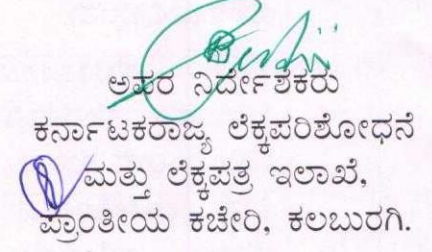 ಅಪರ ನಿರ್ದೇಶಕರು
ಕರ್ನಾಟಕರಾಜ್ಯ ಲೆಕ್ಕಪರಿಶೋಧನೆ
ಮತ್ತು ಲೆಕ್ಕಪತ್ರ ಇಲಾಖೆ,
ಪ್ರಾಂತೀಯ ಕಚೇರಿ, ಕಲಬುರಗಿ.